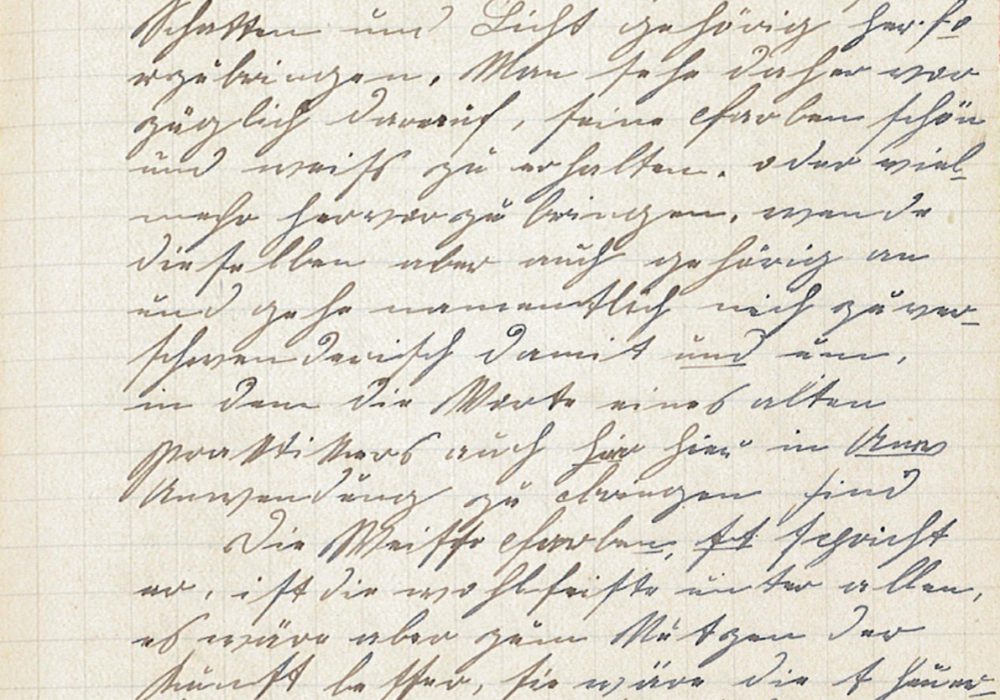 Schatten und Licht gehörig her fo
rzubringen. Man sehe daher vor
züglich darauf, seine Farben schön
und weiß zu erhalten. oder viel-
mehr hervorzubringen. wende
dieselben aber auch gehörig an
und gehe namentlich nich zu ver-
schwenderisch damit und um,
in dem die Worte eines alten
Praktikers auch hir hier in Anw
Anwendung zu bringen sind
Die Weiße Farben, spricht
er, ist die wohlfeiste unter allen,
es wäre aber zum Nutzen der
Kunst besser, sie wäre die theuer